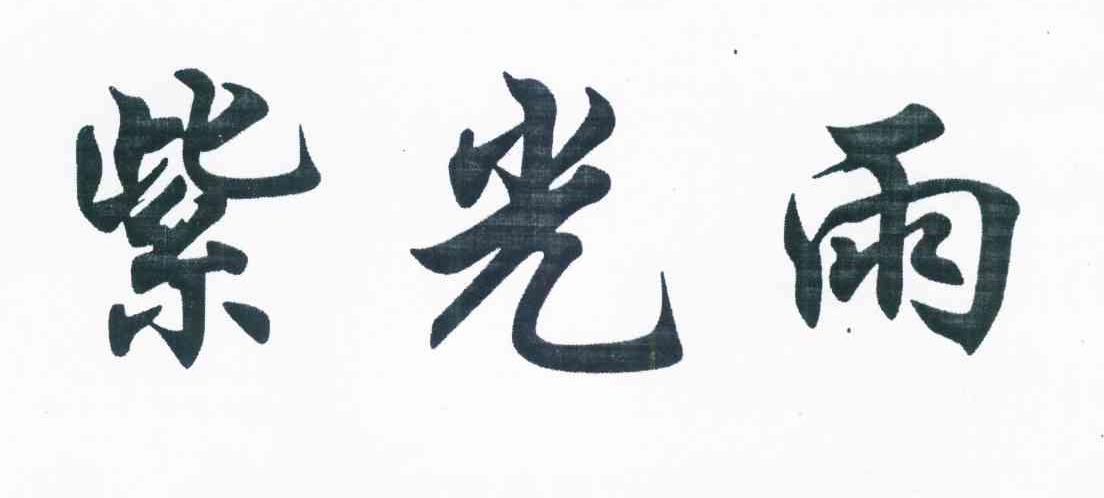 紫光雨